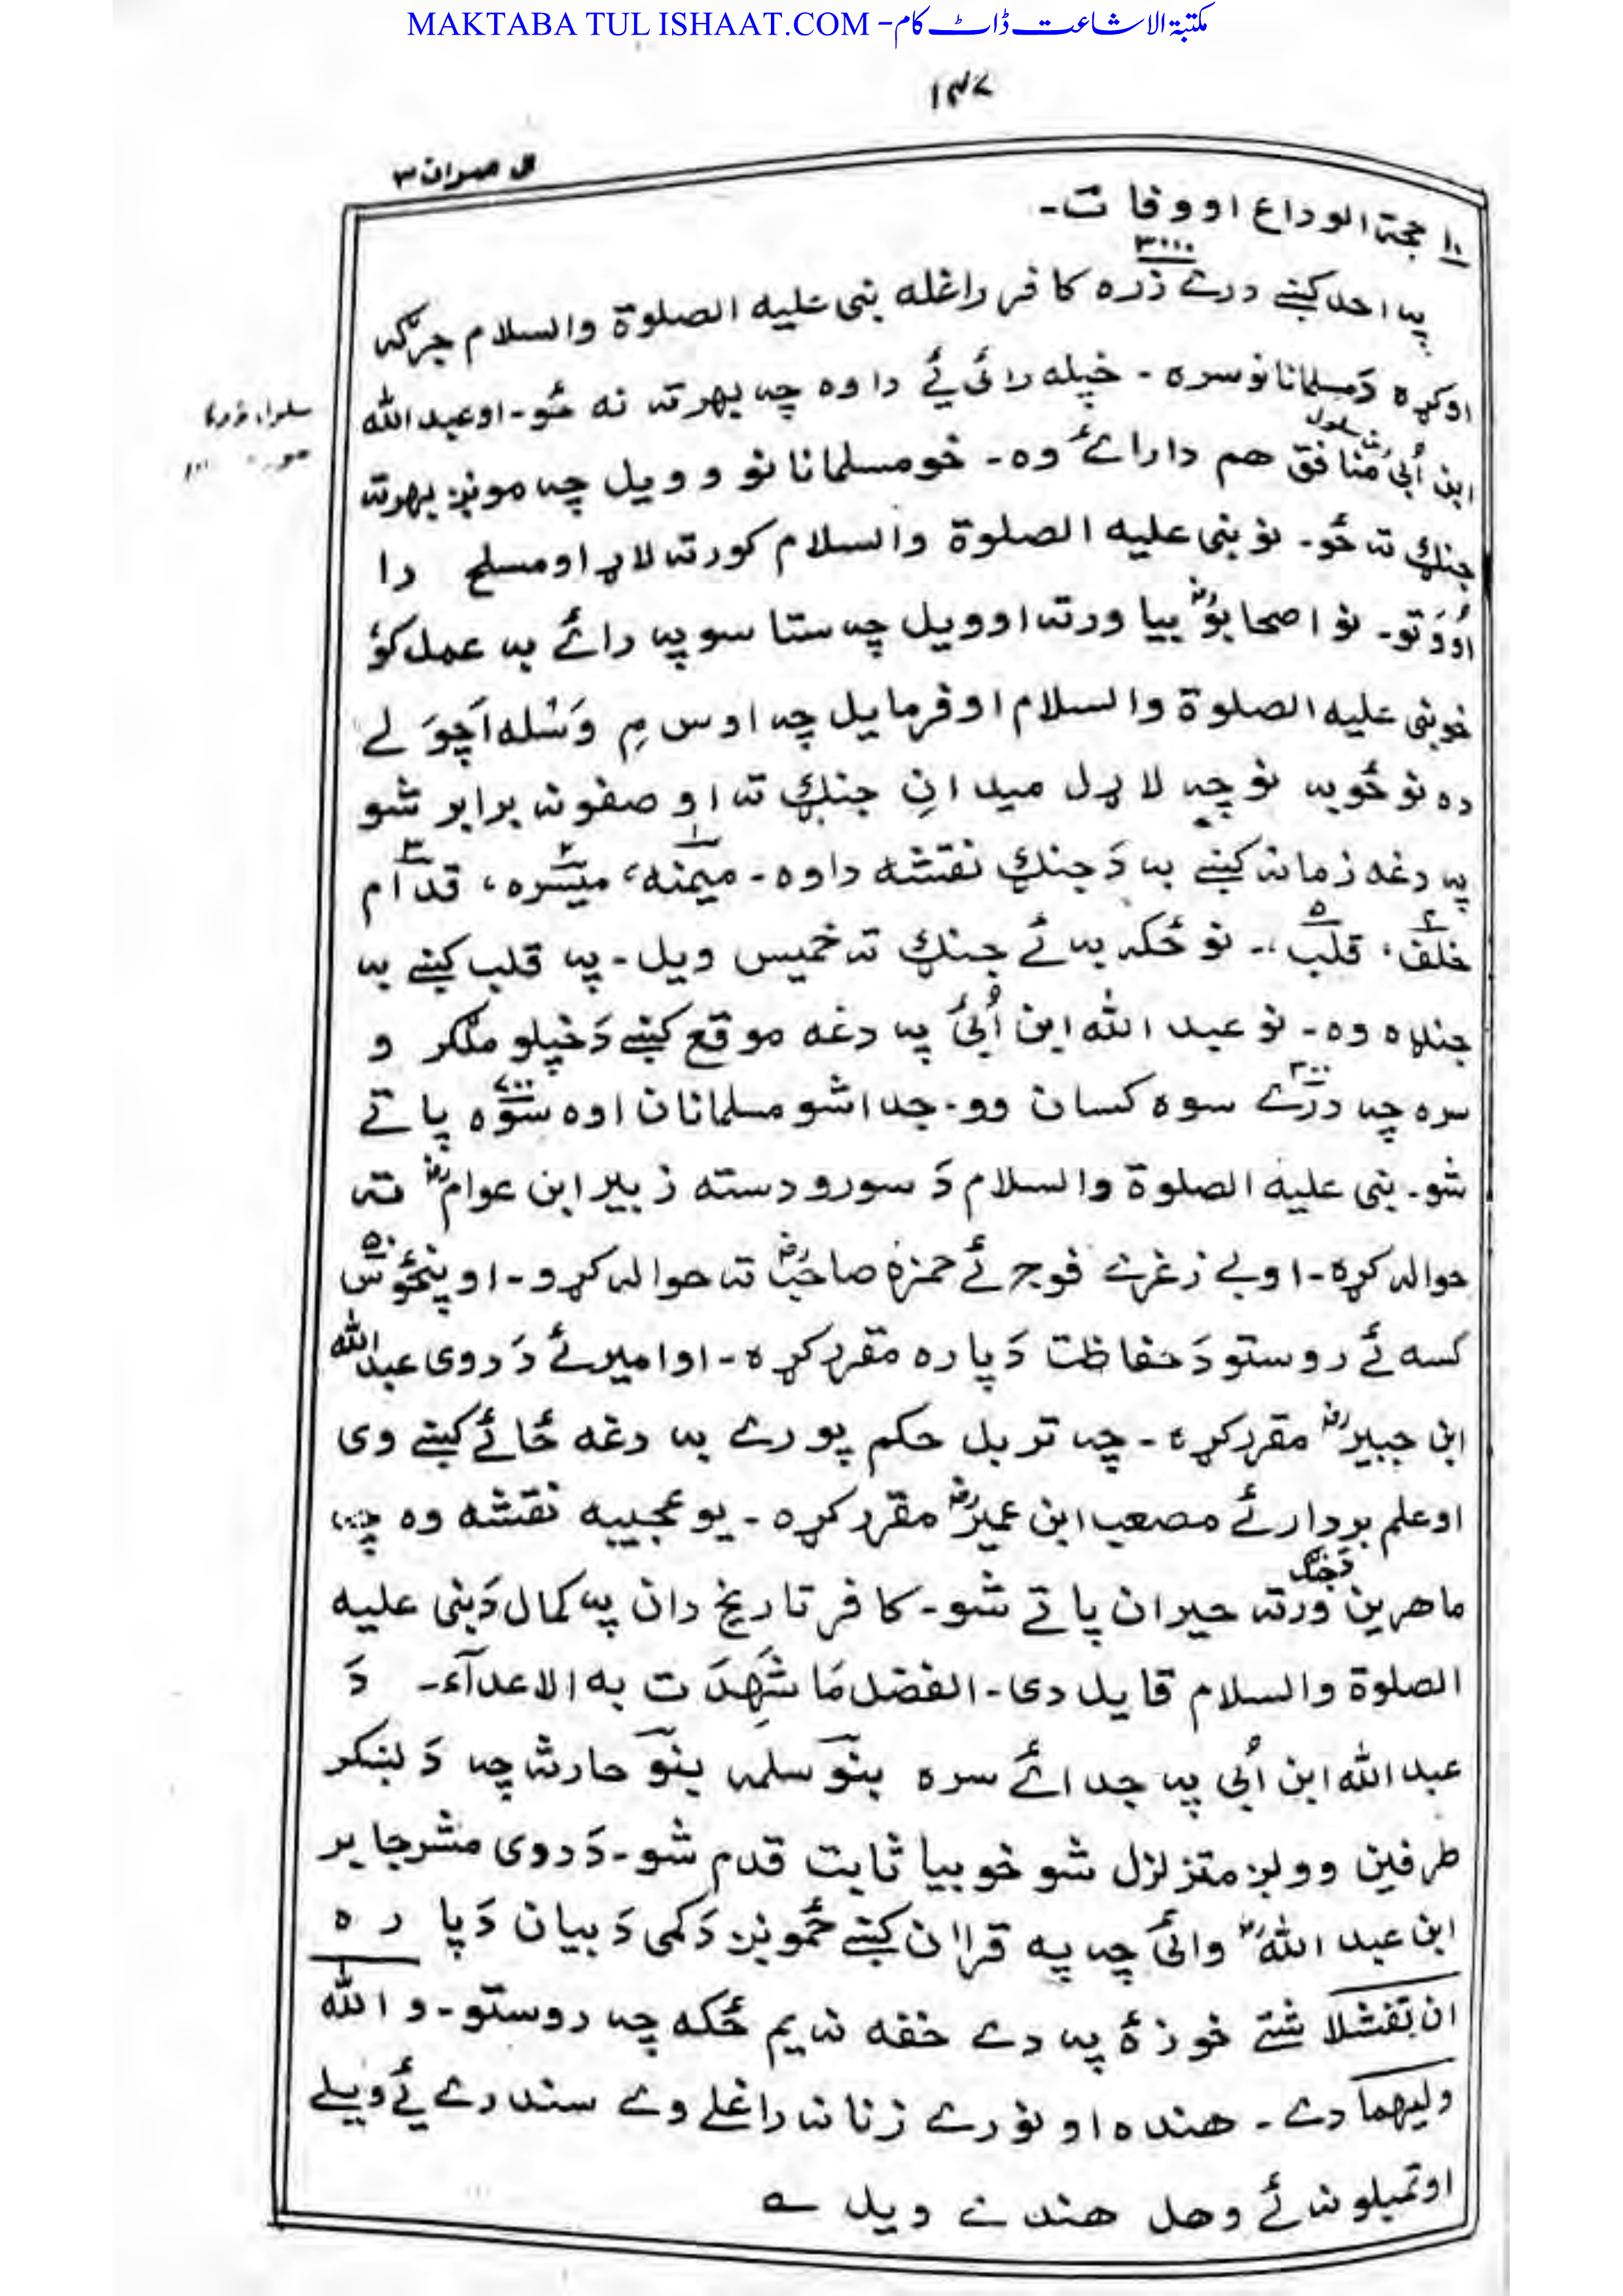 MAKTABA TUL ISHAAT.COM - مکتبۃ الاشاعت ڈاٹ کام
۱۴۷
ال عمران ۳
۱۰ حجۃ الوداع او وفات۔
۳۰۰۰
په احد کښے درے زره کافر راغله نبی علیه الصلوة والسلام جرګه
اوکړه دَ مسلمانانو سره ۔ خپله رائی ئے دا وه چه بهر ته نه ځو ۔ او عبد الله
ابن اُبیّ منافق هم دا رائے وه ۔ خو مسلمانانو وویل چه مونږ بهر ته
جنګ ته ځو ۔ نو نبی علیه الصلوة والسلام کور ته لاړ او مسلح را
اووَتو ۔ نو اصحابوؓ بیا ورته اوویل چه ستاسو په رائے به عمل کوؤ
خو نبی علیه الصلوة والسلام اوفرمایل چه اوس مِ وَسله اَچوَلے
ده نو ځو به نو چه لاړل میدانِ جنګ ته او صفونه برابر شو
په دغه زمانه کښے به دَ جنګ نقشه دا وه ۔ میمنه۱، میسره۲، قدام۳
خلف۴، قلب۵ ۔ نو ځکه به ئے جنګ ته خمیس ویل ۔ په قلب کښے به
جنډه وه ۔ نو عبد الله ابن اُبیّ په دغه موقع کښے دَ خپلو ملګرو
سره چه درے ۳۰۰ سوه کسان وو ۔ جدا شو مسلمانان اوه سوه ۷۰۰ پاتے
شو ۔ نبی علیه الصلوة والسلام دَ سورو دسته زبیر ابن عوامؓ ته
حواله کړه ۔ او بے زغرے فوج ئے حمزه صاحبؓ ته حواله کړو ۔ او پنځوس ۵۰
کسه ئے روستو دَ حفاظت دَپاره مقرر کړه ۔ او امیر ئے دَ دوی عبد الله
ابن جبیرؓ مقرر کړه ۔ چه تر بل حکم پورے به دغه ځائے کښے وی
او علم بردار ئے مصعب ابن عمیرؓ مقرر کړه ۔ یو عجیبه نقشه وه چه
ماهرین دَ جنګ ورته حیران پاتے شو ۔ کافر تاریخ دان په کمال دَ نبی علیه
الصلوة والسلام قایل دی ۔ الفضل مَا شَهِدَت به الاعدآء ۔ دَ
عبد الله ابن اُبی په جدائے سره بنو سلمه بنو حارثه چه دَ لښکر
طرفین وو لږ متزلزل شو خو بیا ثابت قدم شو ۔ دَ دوی مشر جابر
ابن عبد اللهؓ وائی چه په قرآن کښے ځمونږ دَ کمی دَ بیان دَپاره
ان تفشلا شتے خو زۀ په دے خفه نه یم ځکه چه روستو ۔ والله
ولیهما دے ۔ هنده او نورے زنانه راغلے وے سندرے ئے ویلے
او تمبلونه ئے وهل هندے ویل ؎